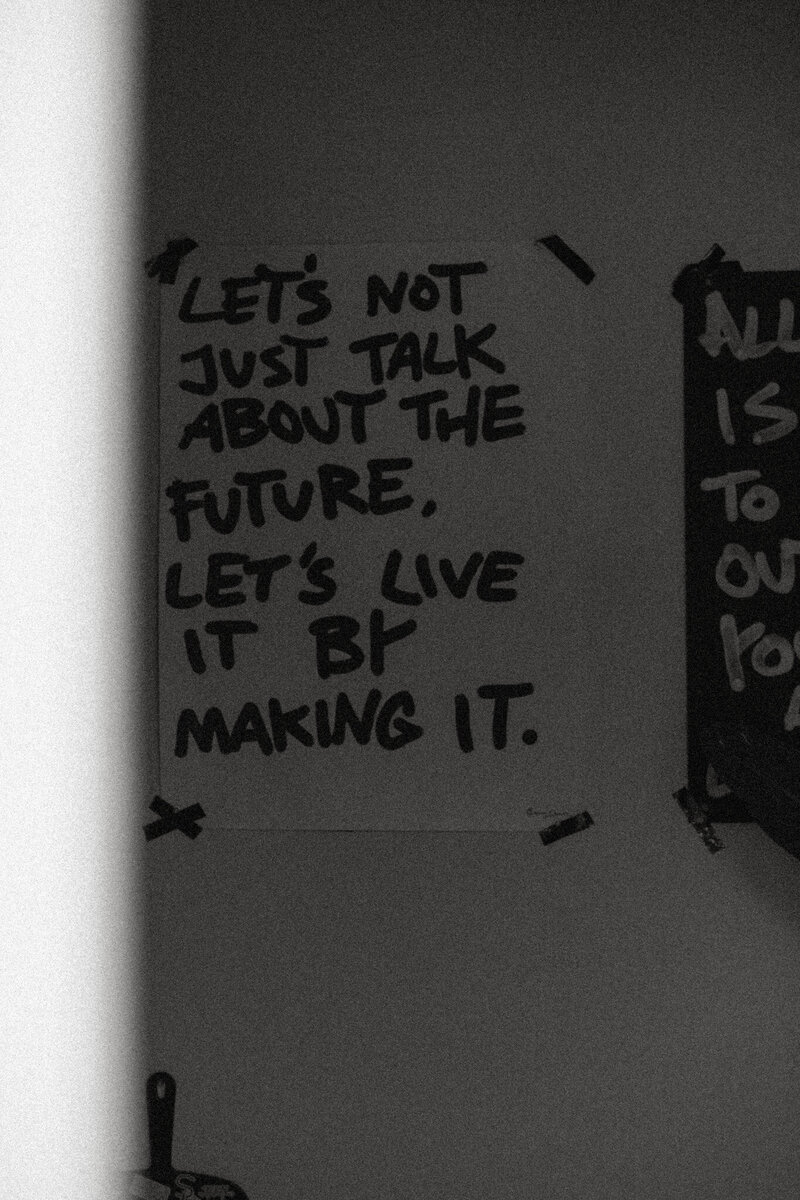 LET'S NOT
JUST TALK
ABOUT THE
FUTURE.
LET'S LIVE
IT BY
MAKING IT.
ALL
IS
TO
OUT
YOU